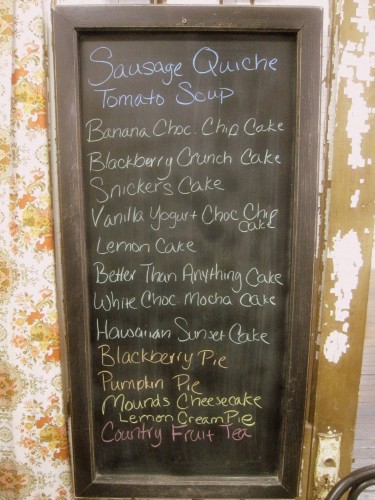 Sausage Quiche
Tomato Soup
Banana Choc. Chip Cake
Blackberry Crunch Cake
Snickers Cake
Vanilla Yogurt Choc Chip
Cake
Lemon Cake
Better Than Anything Cake
White Choc Mocha Cake
Hawaiian Sunset Cake
Blackberry Pie
Pumpkin Pie
Mounds Cheesecake
Lemon Cream Pie
Country Fruit Tea